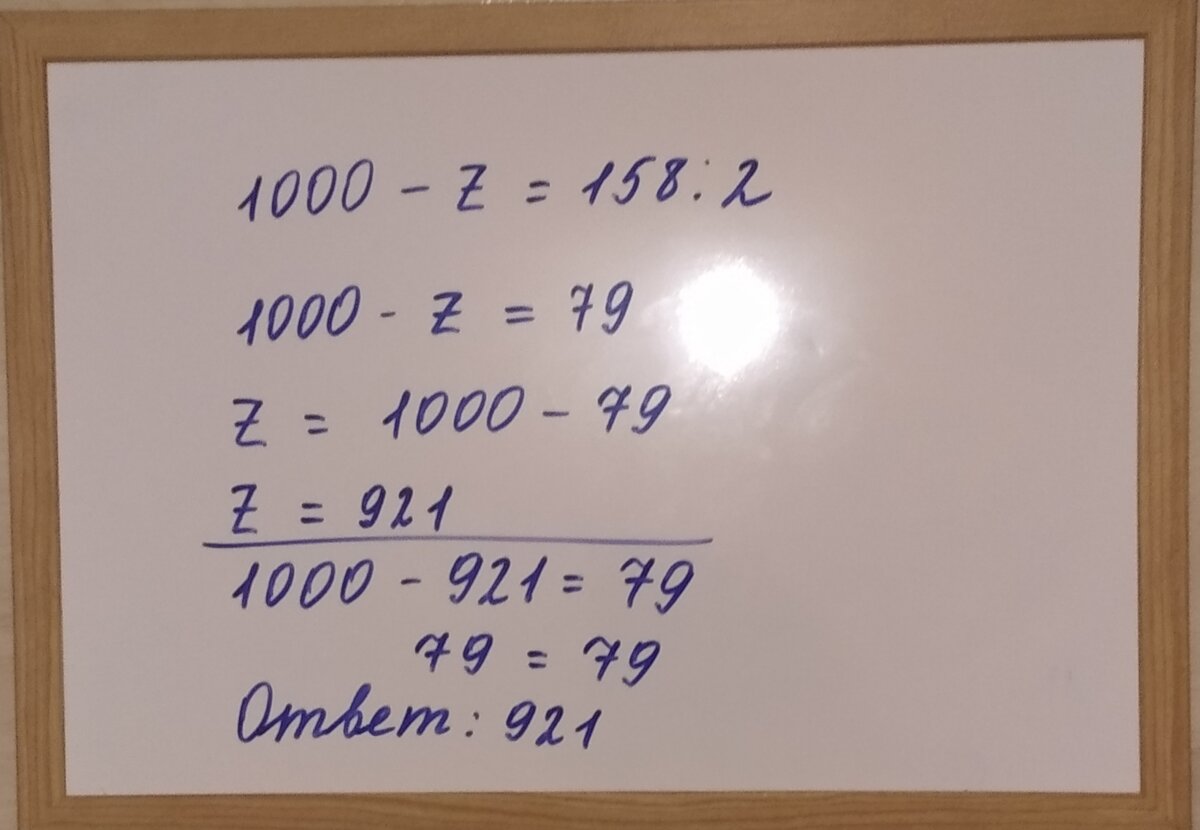 1000 - z = 158 : 2
1000 - z = 79
z = 1000 - 79
z = 921
1000 - 921 = 79
79 = 79
Ответ: 921